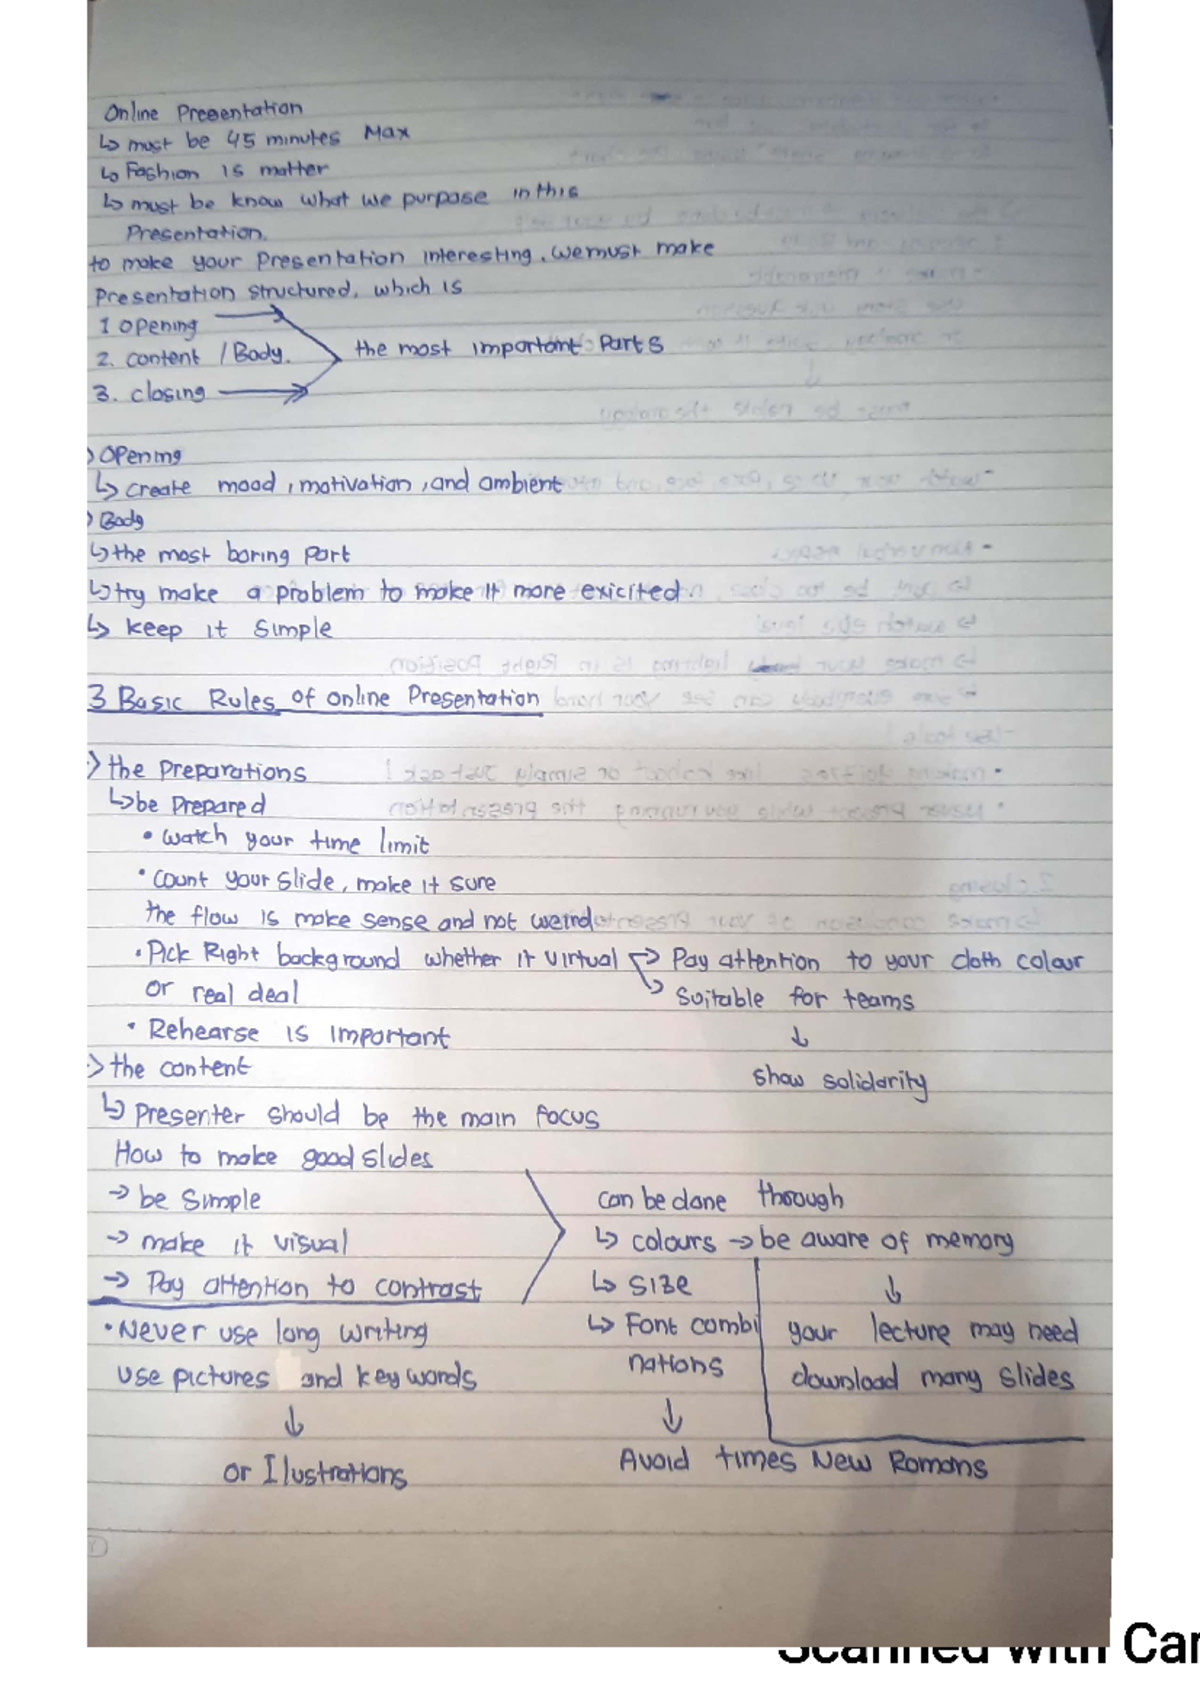 Online Presentation
↳ must be 45 minutes Max
↳ Fashion is matter
↳ must be know what we purpose in this
Presentation.
to make your presentation interesting. we must make
Presentation structured, which is
1 opening
2. content / Body. the most important Parts
3. closing
> Opening
↳ create mood, motivation, and ambient
> Body
↳ the most boring part
↳ try make a problem to make it more exicited
↳ keep it simple
3 Basic Rules of online Presentation
> the Preparations
↳ be Prepared
• watch your time limit
• count your slide, make it sure
the flow is make sense and not weird
• Pick Right background whether it virtual → Pay attention to your cloth colour
or real deal ↳ suitable for teams
• Rehearse is important ↓
> the content show solidarity
↳ Presenter should be the main focus
How to make good slides
→ be simple can be done through
→ make it visual ↳ colours → be aware of memory
→ Pay attention to contrast ↳ size ↓
• Never use long writing ↳ Font combi your lecture may need
use pictures and key words nations download many slides
↓ ↓
or Ilustrations Avoid times New Romans
Scanned with Car